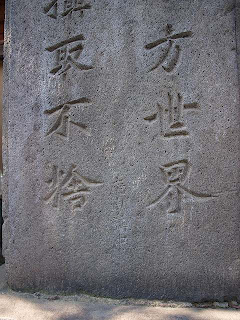 方世界
摂取不捨